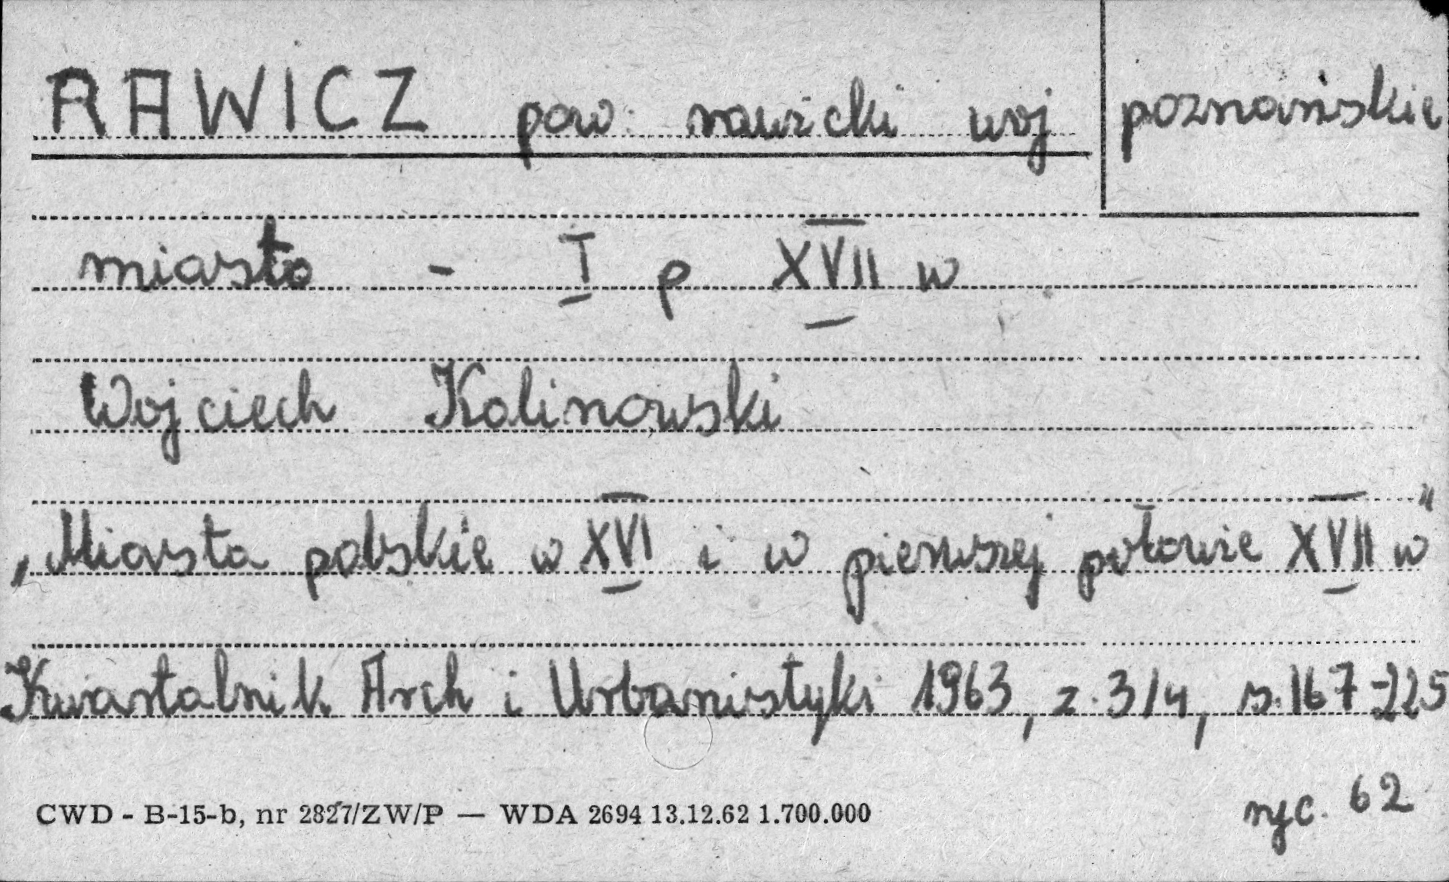 RAWICZ pow. rawicki woj poznańskie
miasto - I p XVII w
Wojciech Kalinowski
„Miasta polskie w XVI i w pierwszej połowie XVII w"
Kwartalnik Arch i Urbanistyki 1963, z. 3/4, s. 167-225
ryc. 62
CWD - B-15-b, nr 2827/ZW/P — WDA 2694 13.12.62 1.700.000